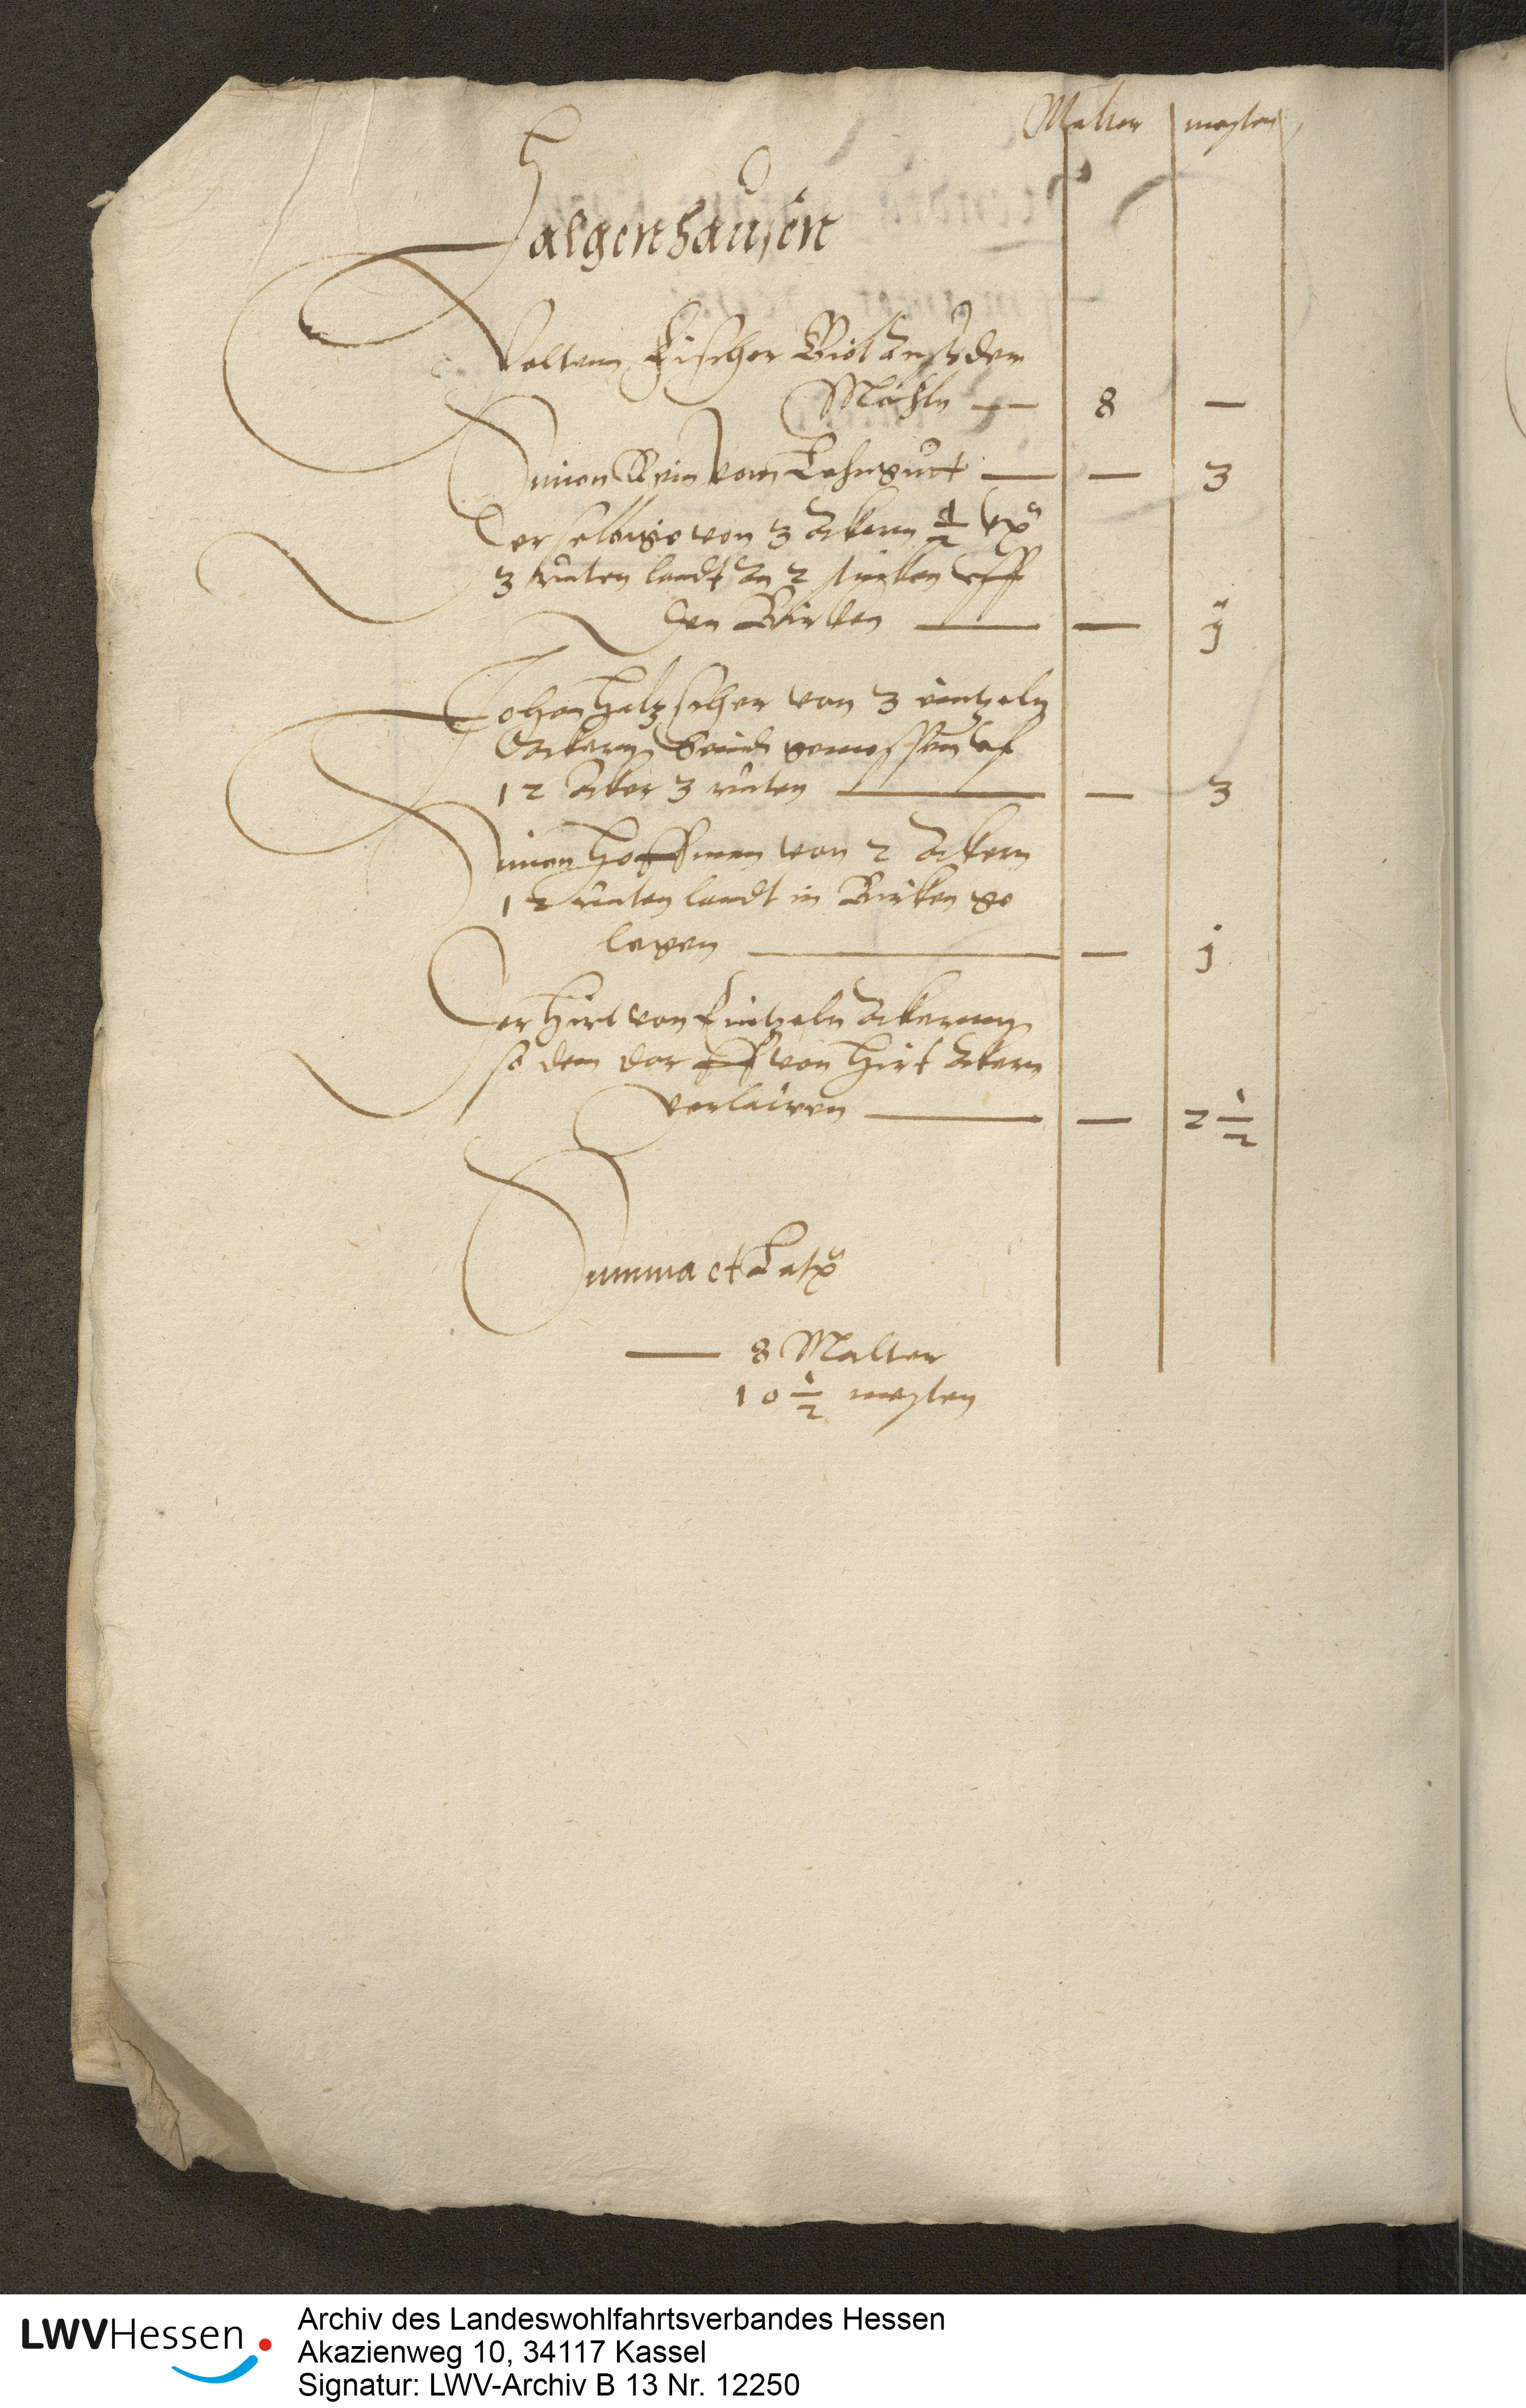 Malter mesten
Halgenhausen
Valten Fischer Gibt Auß der
Möhln — 8 —
Simon Rein vom Lehnguet — — 3
Derselbige von 3 Ackern 1/2
3 ruten landt An 2 stucken uff
den Bircken — — j
Johan von 3 eintzeln
Ackern gemessen uf
12 Acker 3 ruten — — 3
Simon Hoffman von 2 Ackern
12 ruten landt in Bircken ge
legen — — j
Der Hirt von Eintzeln Ackern
so dem dorff von Hirt Ackern
— — 2 1/2
Summa et
— 8 Malter
10 1/2 mesten
LWVHessen
Archiv des Landeswohlfahrtsverbandes Hessen
Akazienweg 10, 34117 Kassel
Signatur: LWV-Archiv B 13 Nr. 12250